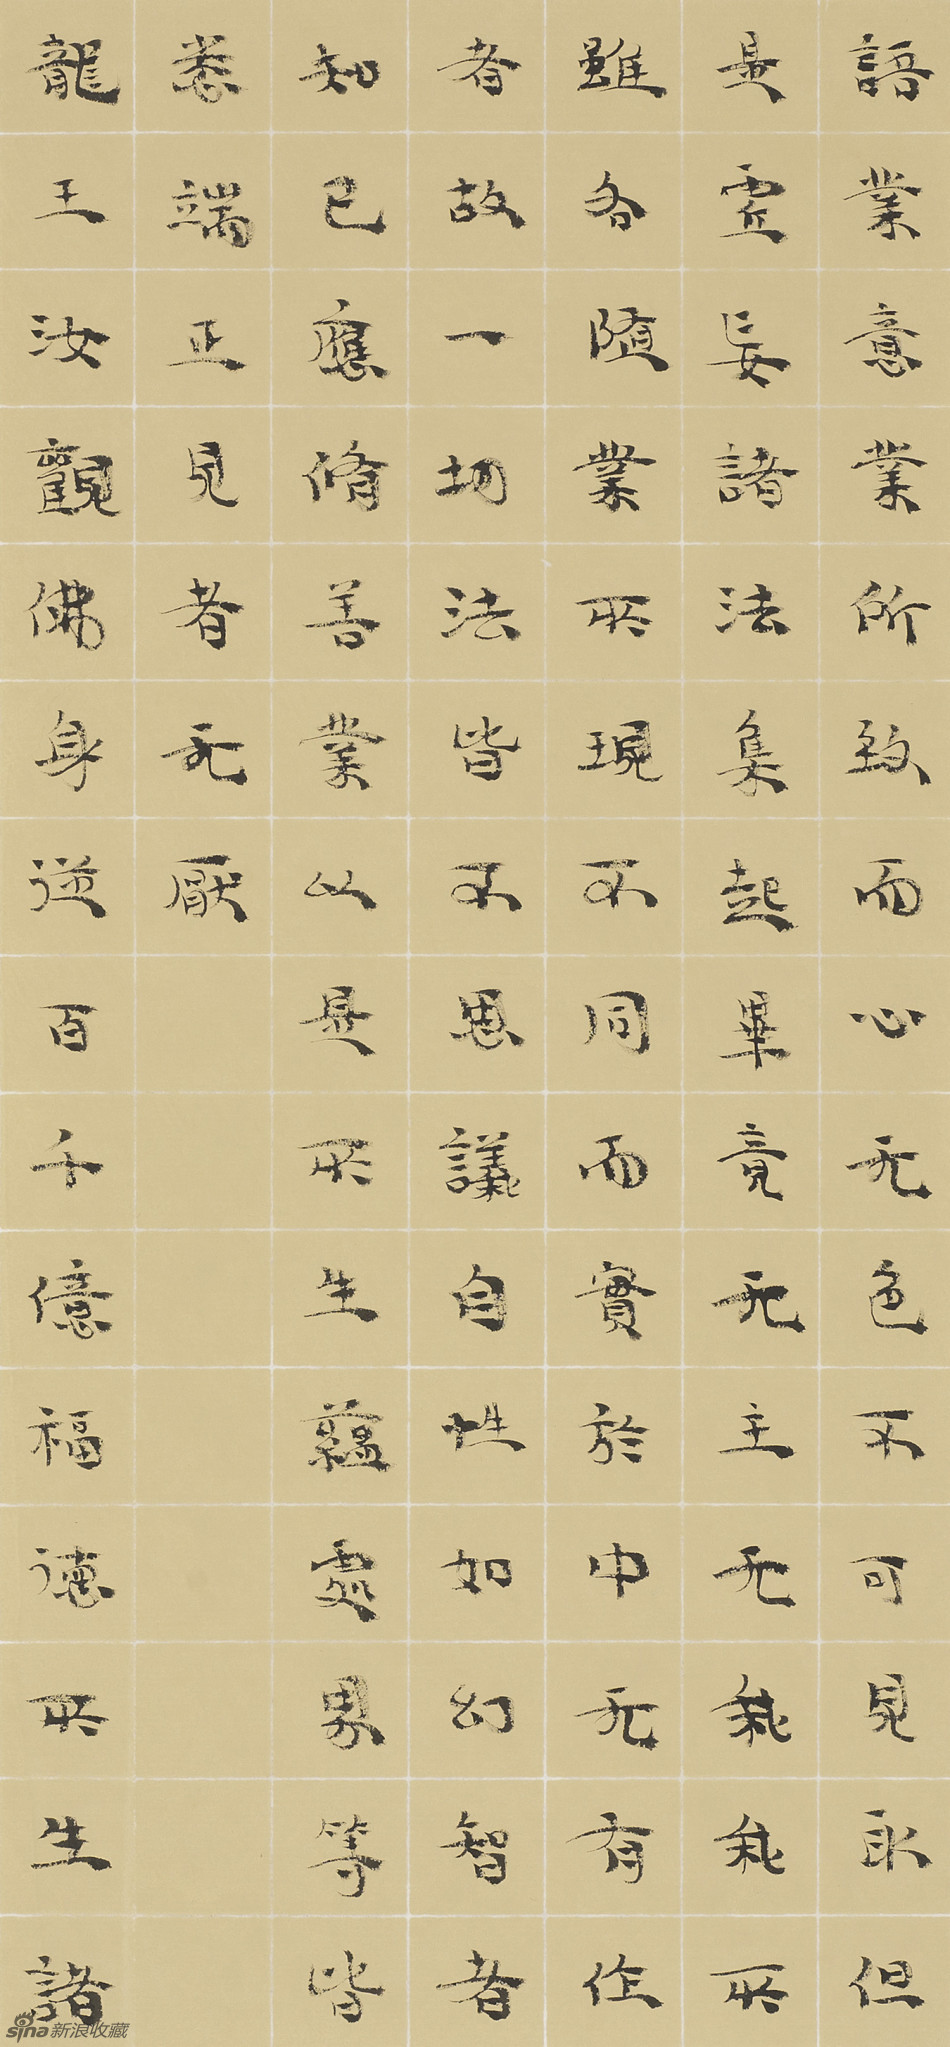 語業意業所致而心无色不可見取但
是虛妄諸法集起畢竟无主无我我所
雖各随業所現不同而實於中无有作
者故一切法皆不思議自性如幻智者
知已應脩善業以是所生蘊處界等皆
悉端正見者无厭
龍王汝觀佛身從百千億福德所生諸
sina新浪收藏